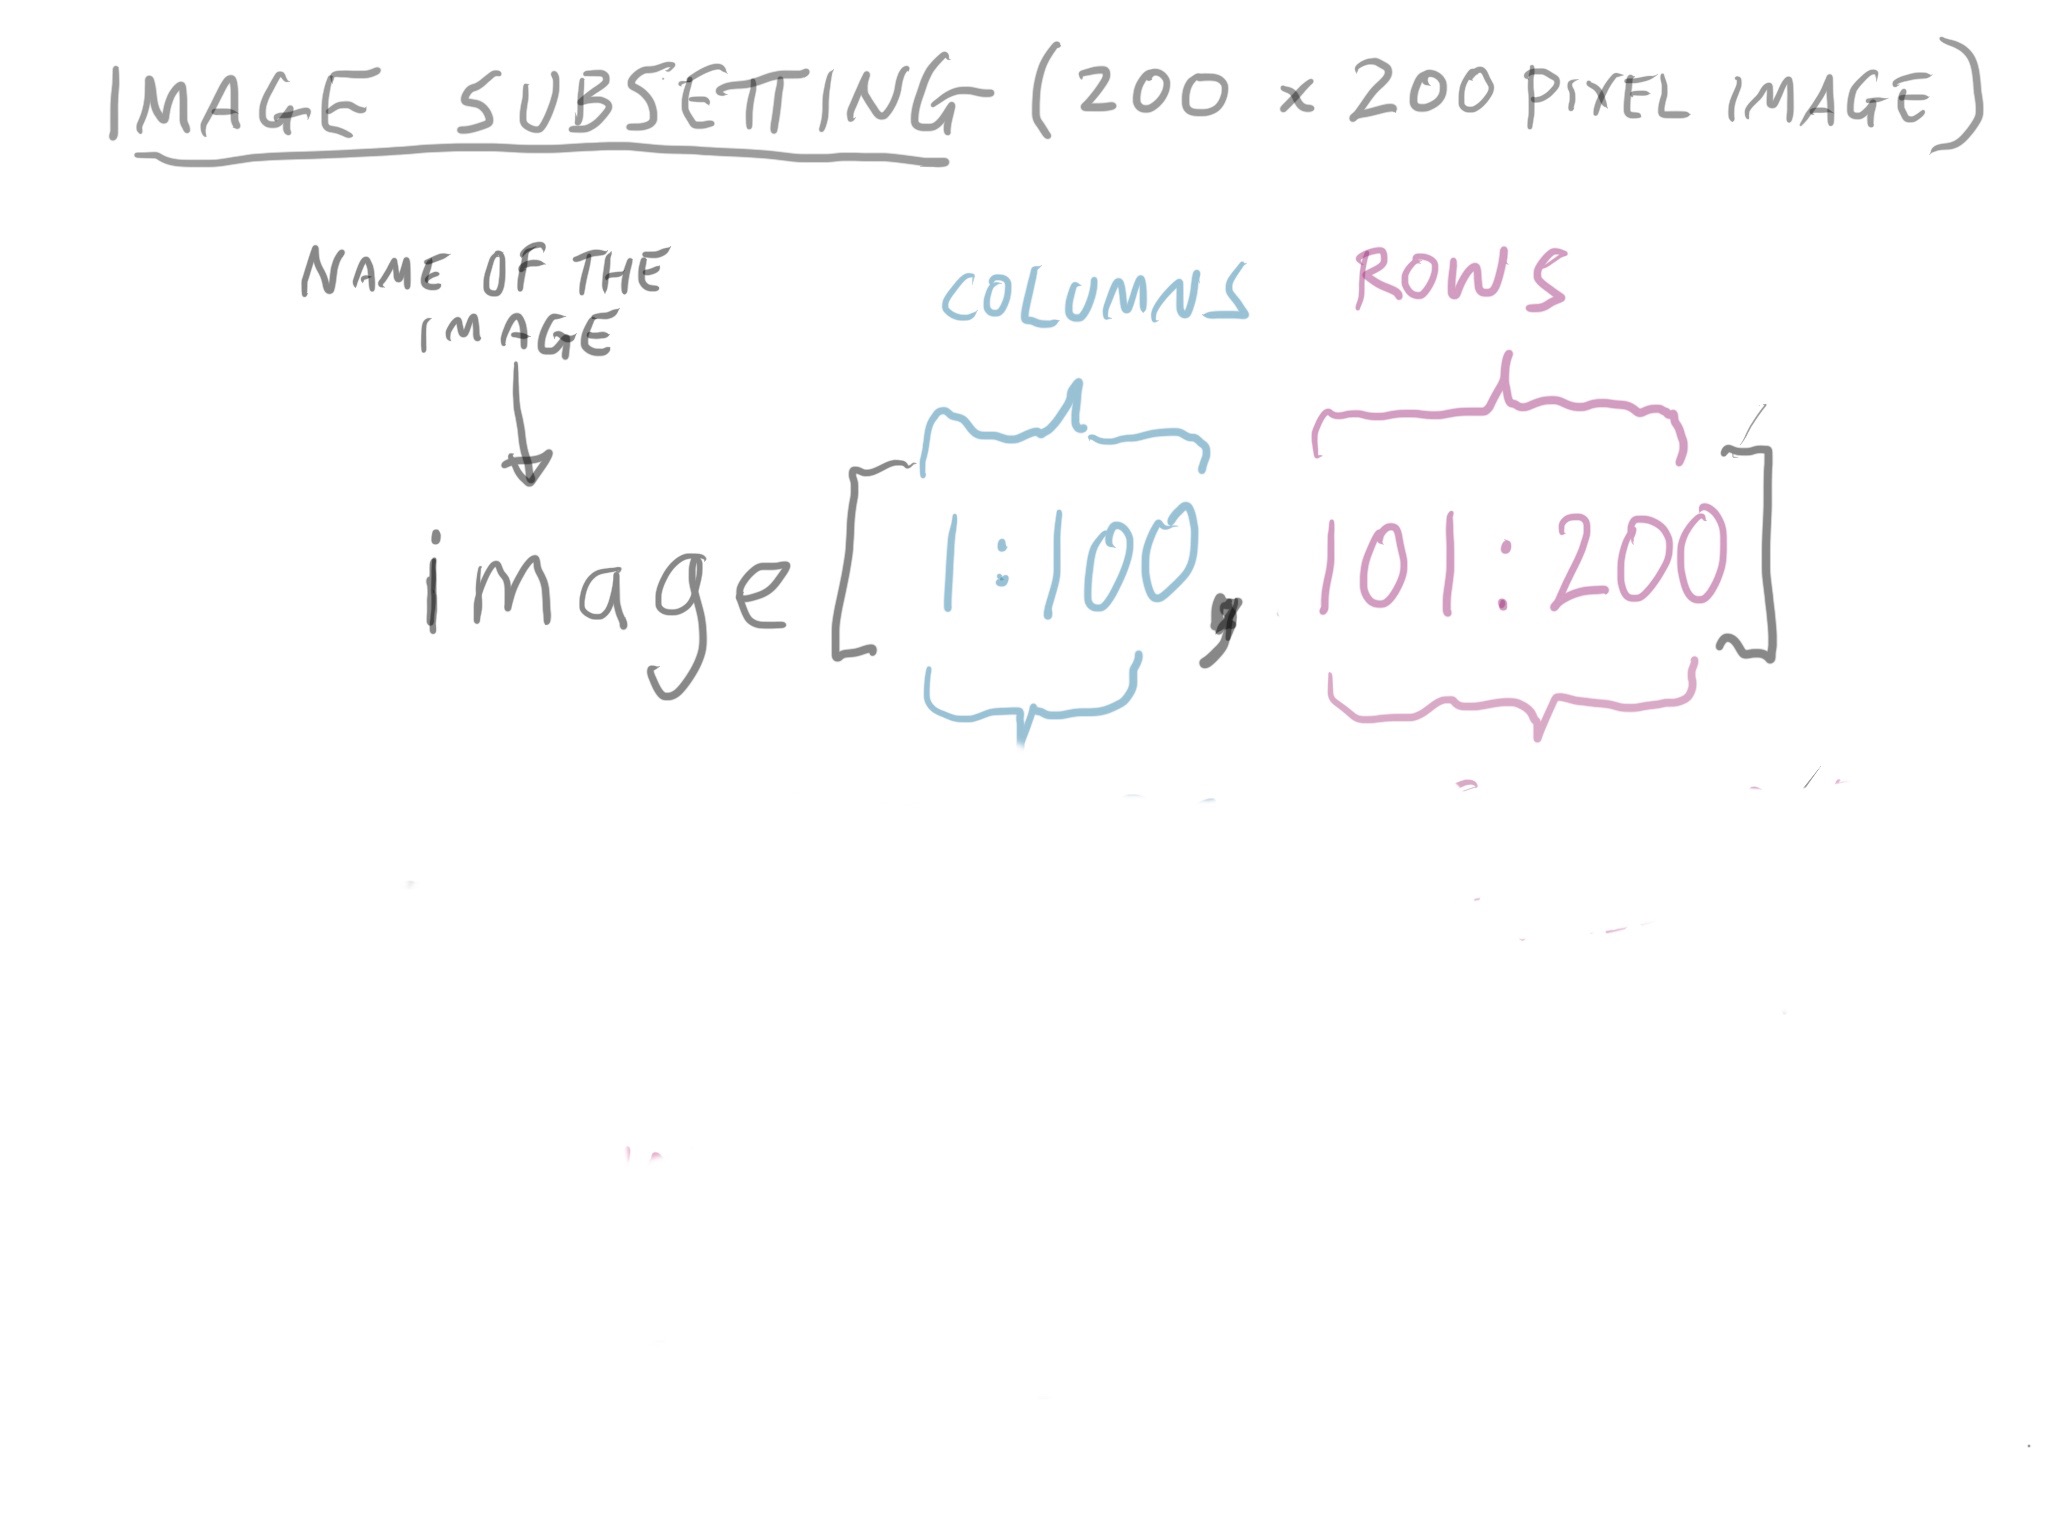 IMAGE SUBSETTING (200 x 200 PIXEL IMAGE)
NAME OF THE
IMAGE
COLUMNS
ROWS
image[1:100, 101:200]